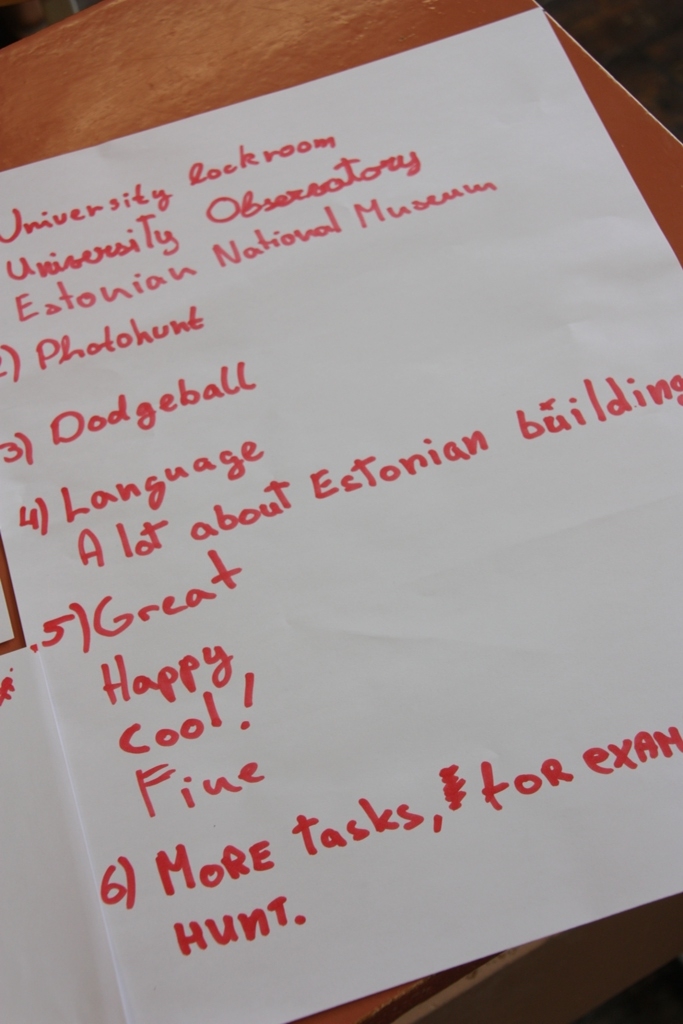 University Lockroom
University Observatory
Estonian National Museum
2) Photohunt
3) Dodgeball
4) Language
A lot about Estonian building
5) Great
Happy
Cool!
Fine
6) MORE tasks, for EXAM
HUNT.